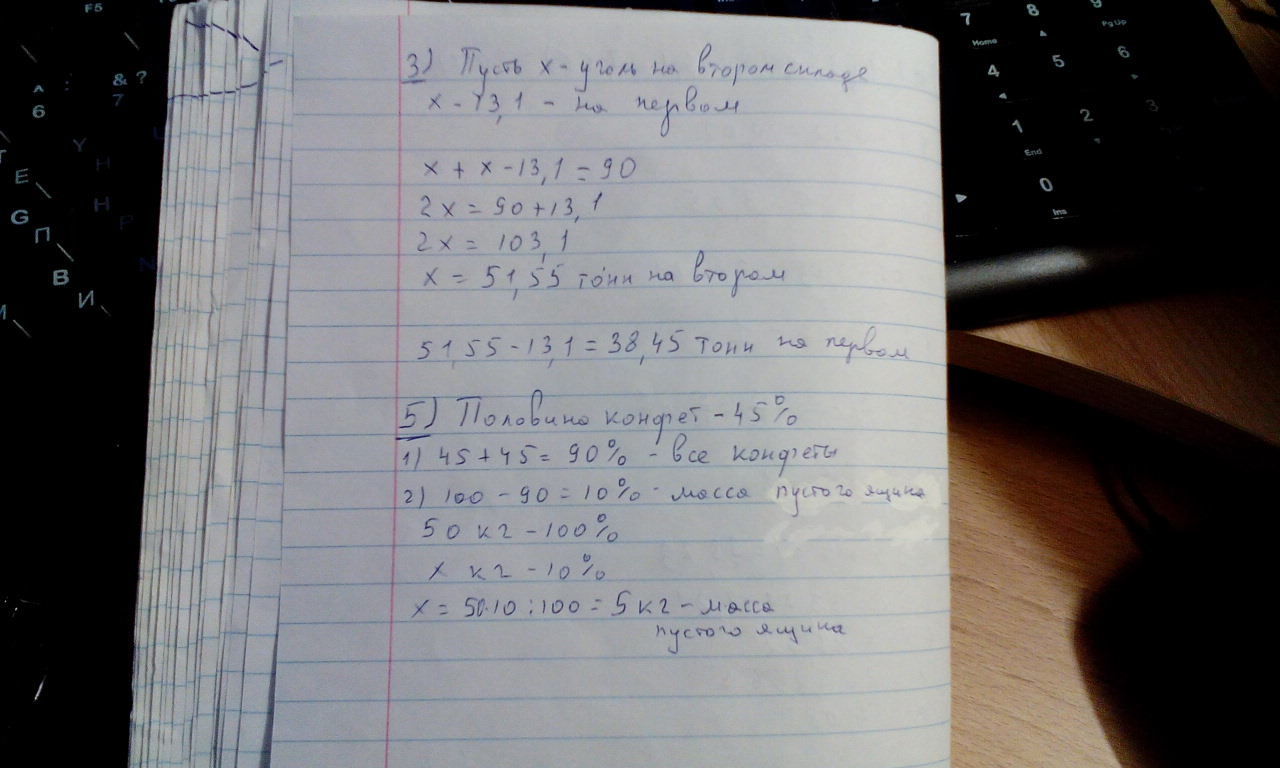 3) Пусть x - уголь на втором складе
x - 13,1 - на первом
x + x - 13,1 = 90
2x = 90 + 13,1
2x = 103,1
x = 51,55 тонн на втором
51,55 - 13,1 = 38,45 тонн на первом
5) Половина конфет - 45%
1) 45 + 45 = 90% - все конфеты
2) 100 - 90 = 10% - масса пустого ящика
50 кг - 100%
x кг - 10%
x = 50·10 : 100 = 5 кг - масса
пустого ящика
F5
^ : & ?
6 7
Y
H
E
G
П
H
P
В
И
7 8 9
Home PgUp
4 5 6
1 2 3
End
0
Ins